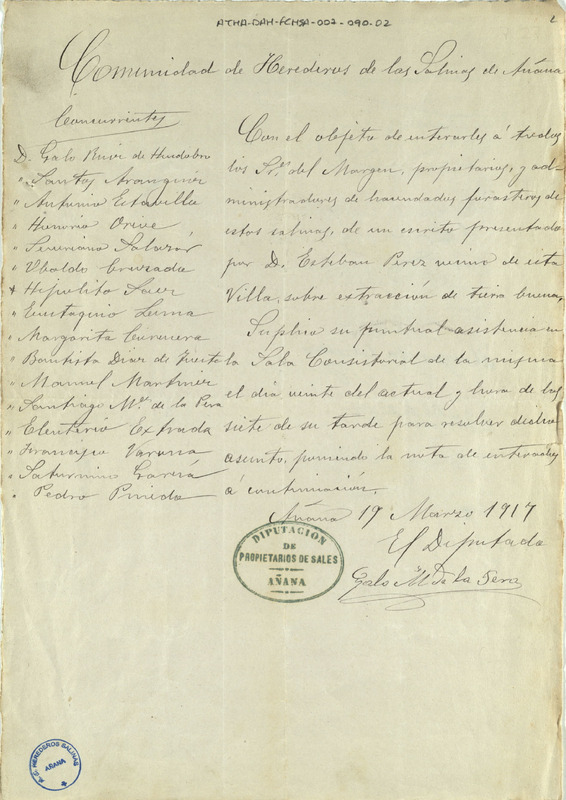 ATHA-DAH-FCHSA-002-090-02
2
Comunidad de Herederos de las Salinas de Añana
Concurrentes
D. Galo Ruiz de Huidobro
" Santos Aranguiz
" Antonio Estavillo
" Honorio Orive
" Severiano Salazar
" Ubaldo Cruzado
" Hipolito Saez
" Eustaquio Lerma
" Margarita
" Bautista Diaz de Tuesta
" Manuel Martinez
" Santiago Mz. de la Pera
" Eleuterio Extrada
" Francisco Varona
" Saturnino García
" Pedro Pinedo
Con el objeto de enterarles á todos
los Srs. del Margen, propietarios, y ad-
ministradores de haciendados forasteros de
estas salinas, de un escrito presentado
por D. Esteban Perez vecino de esta
Villa, sobre extracción de tierra buena,
Suplico su puntual asistencia en
la Sala Consistorial de la misma
el día veinte del actual y hora de las
siete de su tarde para resolver dicho
asunto, poniendo la nota de enterados
á continuación.
Añana 19 Marzo 1917
El Diputado
Galo Mz de la Pera
DIPUTACION
DE
PROPIETARIOS DE SALES
AÑANA
HEREDEROS SALINAS
AÑANA